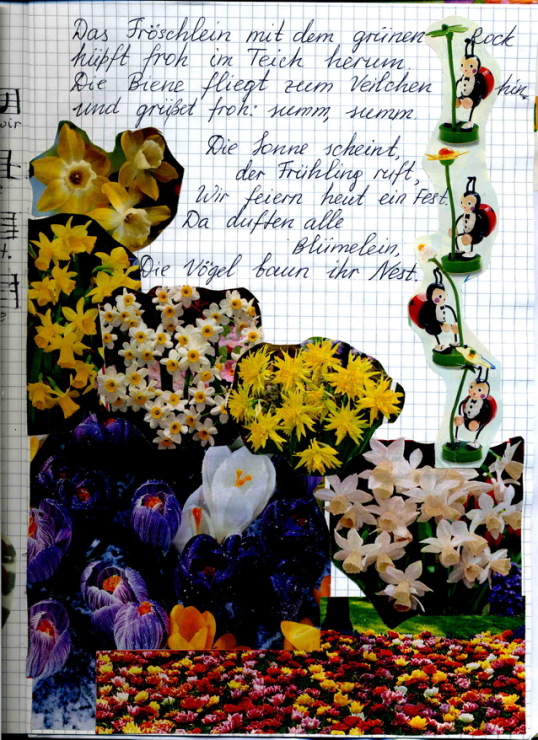 Das Fröschlein mit dem grünen Rock
hüpft froh im Teich herum.
Die Biene fliegt zum Veilchen hin,
und grüßet froh: summ, summ.
Die Sonne scheint,
der Frühling ruft,
Wir feiern heut ein Fest.
Da duften alle
Blümelein,
Die Vögel baun ihr Nest.
wir